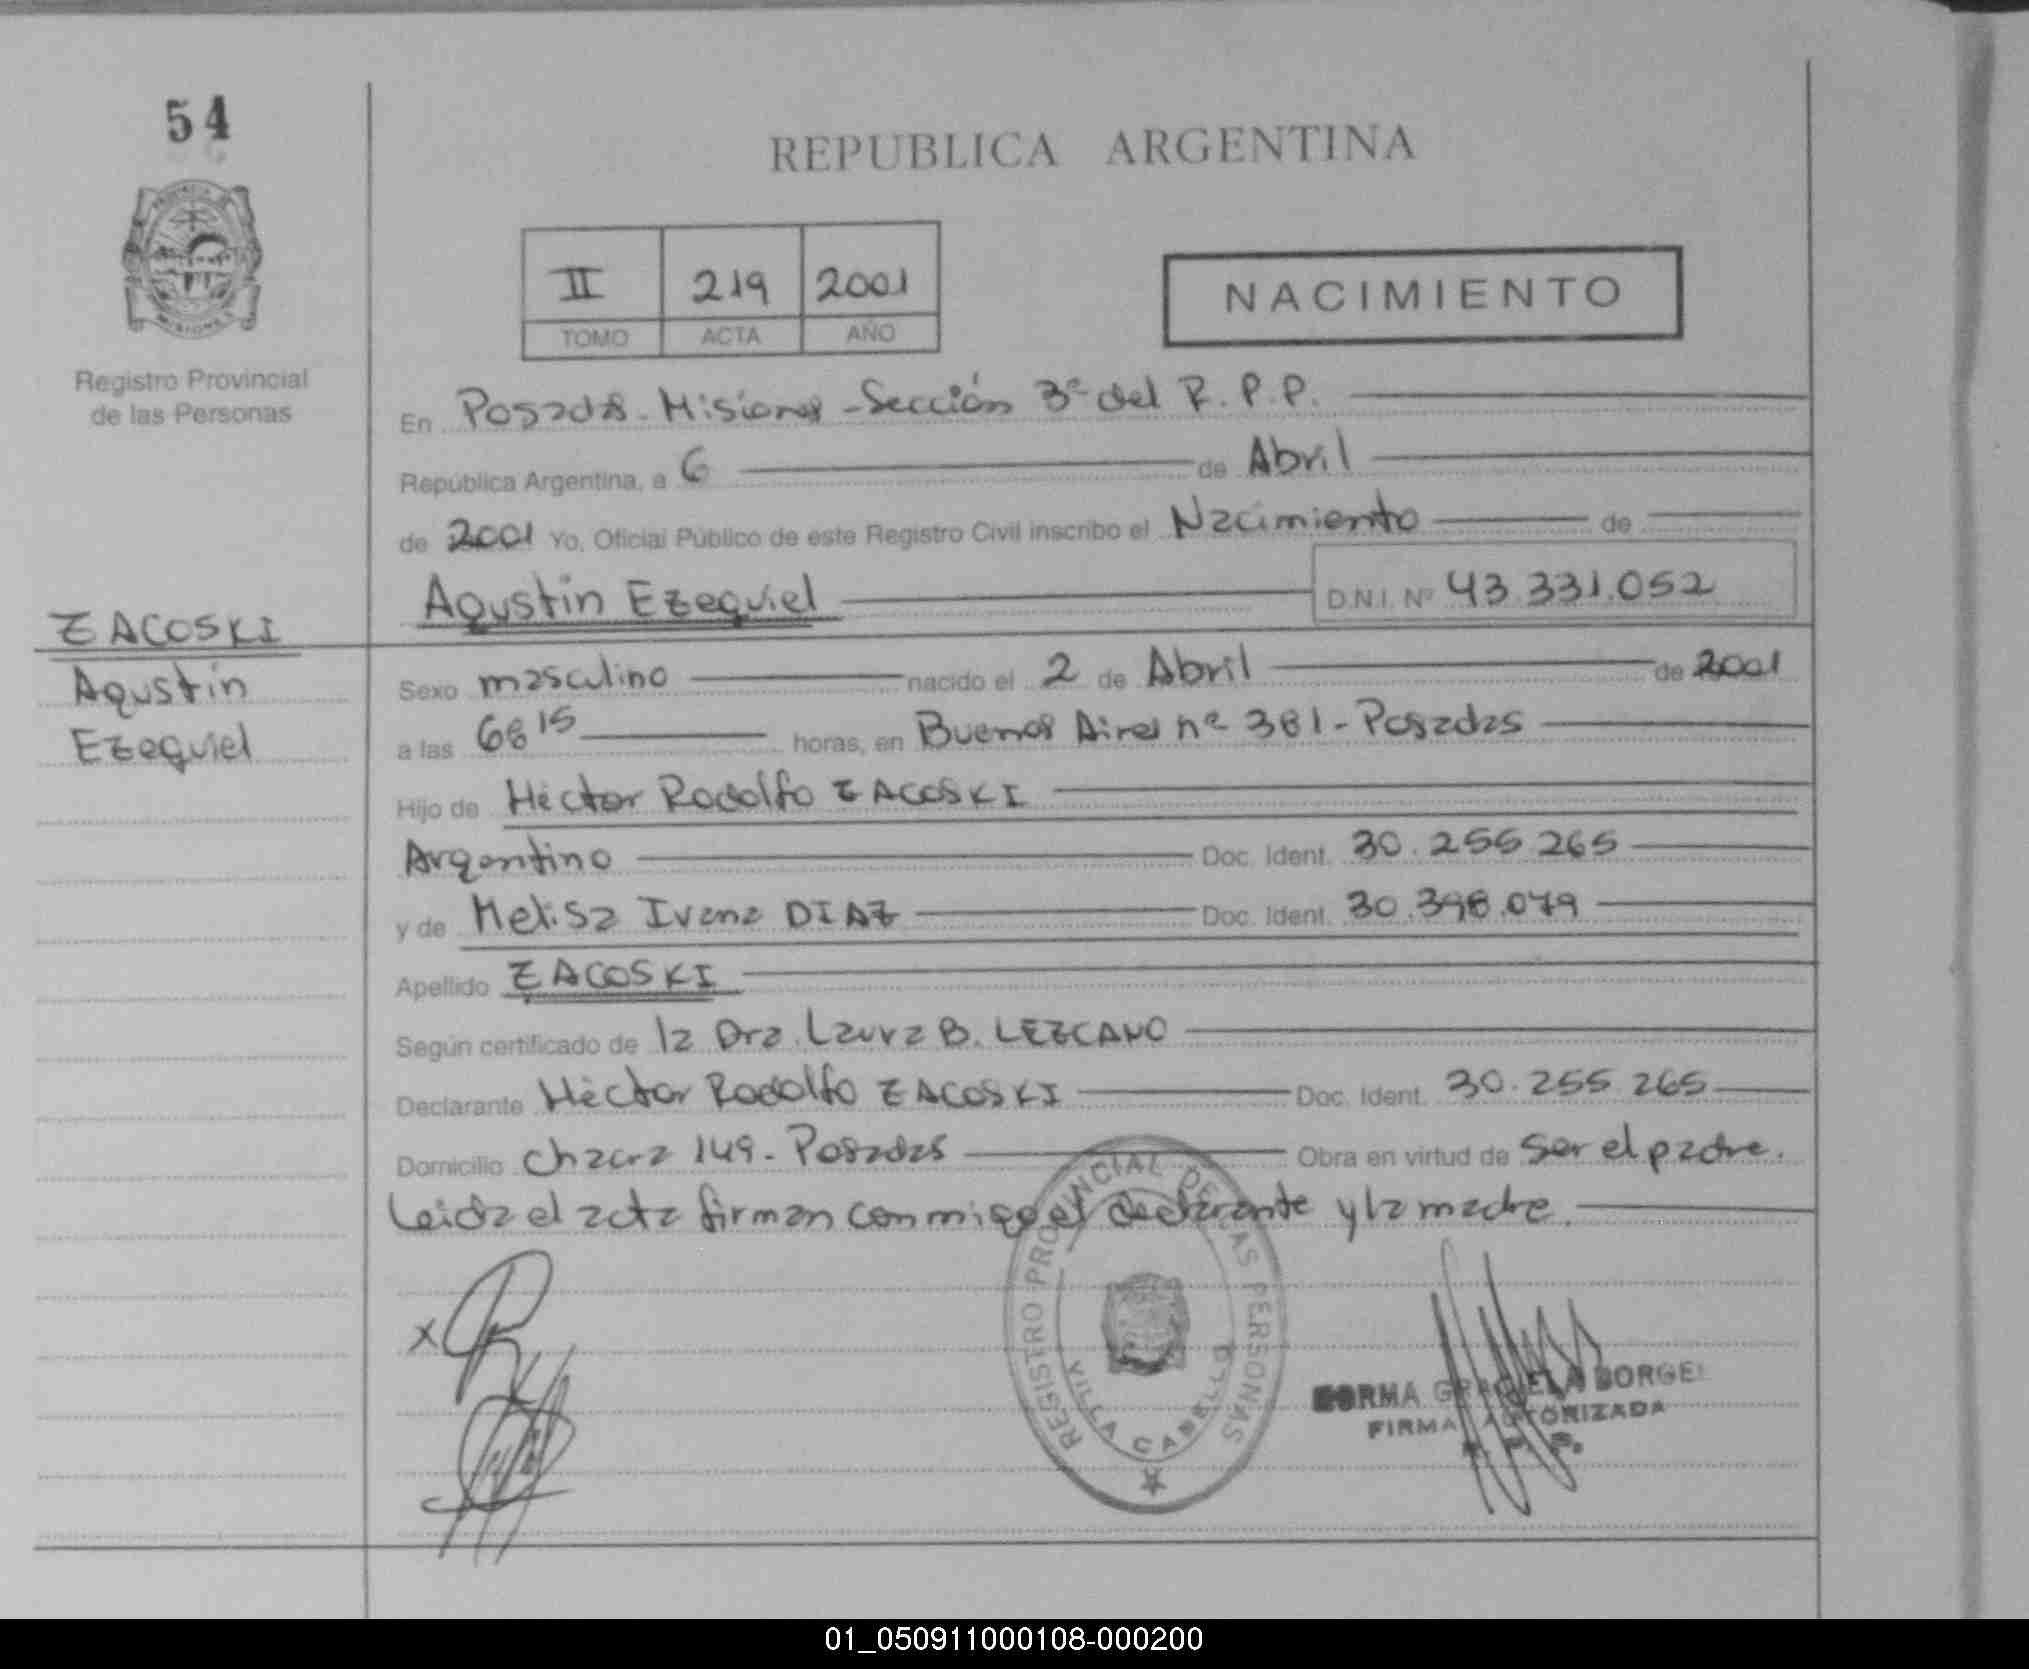 54
REPUBLICA ARGENTINA
II 219 2001
TOMO ACTA AÑO
NACIMIENTO
Registro Provincial
de las Personas
En Posadas - Misiones - Sección 3º del R.P.P.
República Argentina, a 6 de Abril
de 2001 Yo, Oficial Público de este Registro Civil inscribo el Nacimiento de
Agustín Ezequiel D.N.I. Nº 43.331.052
ZACOSKI
Agustín
Ezequiel
Sexo masculino nacido el 2 de Abril de 2001
a las 6 15 horas, en Buenos Aires nº 381 - Posadas
Hijo de Héctor Rodolfo ZACOSKI
Argentino Doc. Ident. 30.255.265
y de Melisa Ivana DIAZ Doc. Ident. 30.398.079
Apellido ZACOSKI
Según certificado de la Dra. Laura B. LEZCANO
Declarante Héctor Rodolfo ZACOSKI Doc. Ident. 30.255.265
Domicilio Chacra 149 - Posadas Obra en virtud de ser el padre.
Leida el acta firman conmigo el declarante y la madre.
REGISTRO PROVINCIAL DE LAS PERSONAS
VILLA CABELLO
NORMA GRACIELA BORGEL
FIRMA AUTORIZADA
R. P. P.
01_050911000108-000200